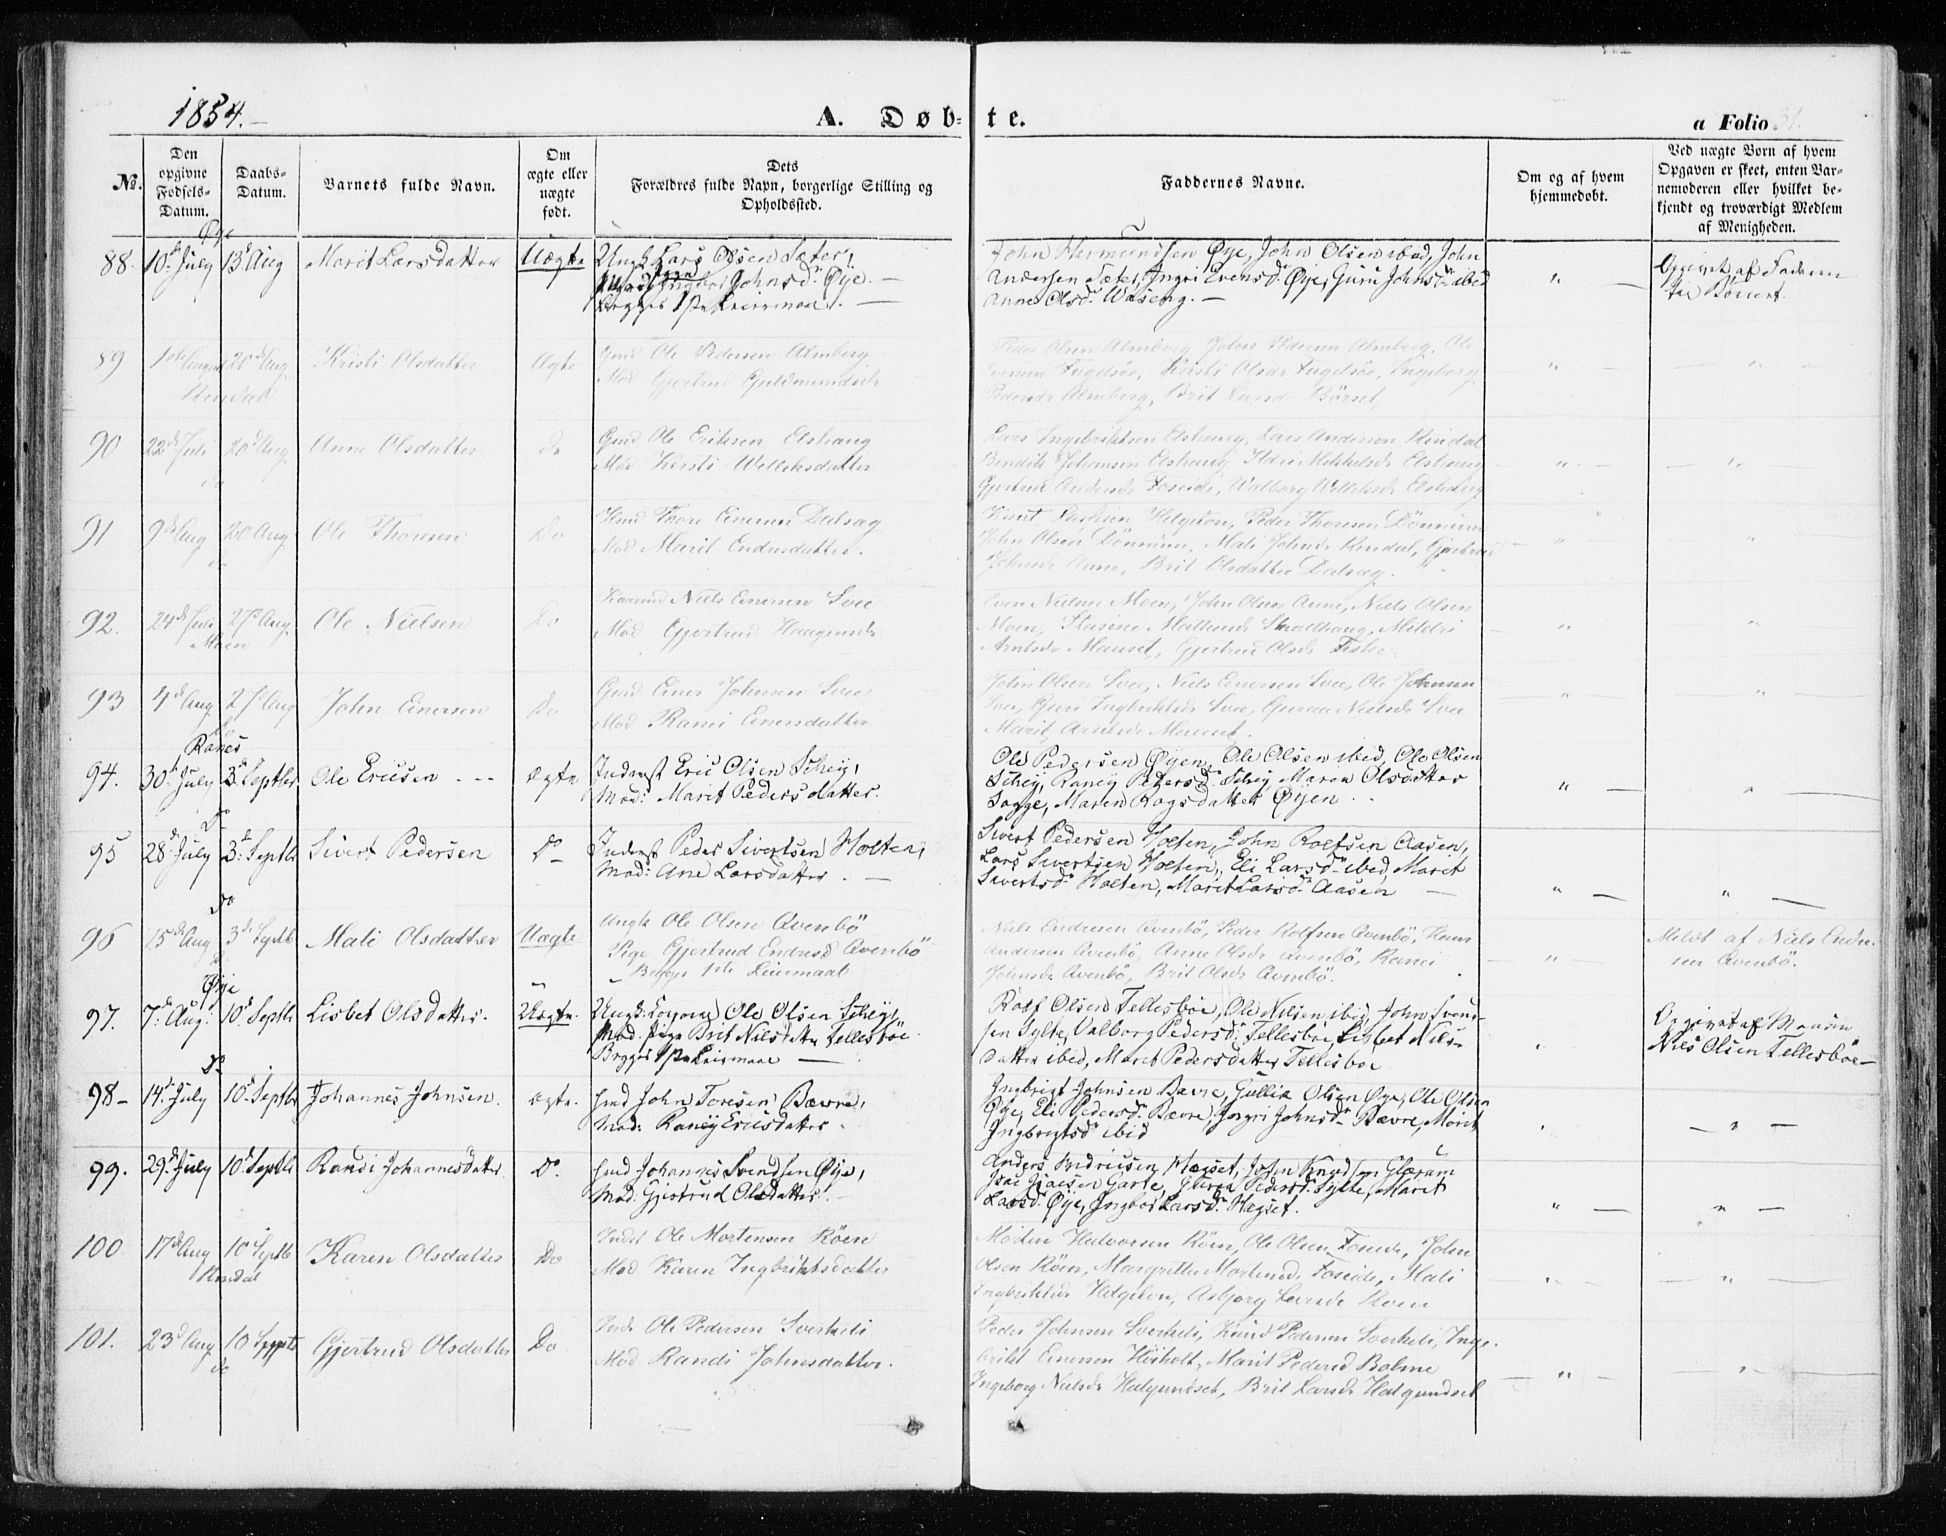 1854.
A. Døb-
te.
a Folio 31.
No.
Den opgivne Fødsels-Datum.
Daabs-Datum.
Barnets fulde Navn.
Om ægte eller uægte født.
Dets Forældres fulde Navn, borgerlige Stilling og Opholdssted.
Faddernes Navne.
Om og af hvem hjemmedøbt.
Ved uægte Børn af hvem Opgaven er skeet, enten Barnemoderen eller hvilket bekjendt og troværdigt Medlem af Menigheden.
Øye
88. 10de July 13d Aug Marit Larsdatter Uægte Ungk. Lars Olsen Sæter,
Johnsd. Øye. —
Begges 1ste Leiermaal. —
John Hermundsen Øye, John Olsen ibid, John
Andersen Sæter, Ingri Evensd. Øye, Guru Johnsd. ibid
Anne Olsd. Waseng. —
Opgivet af Faderen
til Barnet.
89 1ste August 20d Aug Kristi Olsdatter Ægte Gmd Ole Pedersen Almberg
Rindal
Mod Gjertrud Guldmundsdr
Peder Olsen Almberg, John Pedersen Almberg, Ole
Fugelsøe, Kirsti Olsdr Fugelsøe, Ingeborg
Pedersdr Almberg, Brit Larsdr Börset
90 22de Juli 20d Aug Anne Olsdatter do Gmd Ole Eriksen Elshaug
do
Mod Kirsti Welliksdatter
Lars Ingebriktsen Elshaug, Lars Andersen Rindal
Bendik Johansen Elshaug Ildri Mikkelsdr Elshaug
Gjertrud Andersdr Foseide, Walborg Welliksdr Elshaug
91 9de Aug 20 Aug Ole Thoresen Do Hmd Thore Einersen Dalsæg
do
Mod Marit Endresdatter.
Knut Helgeton, Peder Thoresen Dönnum
John Olsen Dönnum, Mali Johnsdr Rindal, Gjertrud
Johnsdr Aune, Brit Olsdatter Dalsæg.
92. 24de Juli 27d Aug. Ole Nielsen Do Niels Einersen Svee
Moen
Mod Gjertrud Haagensdr
Even Nielsen Moen, John Olsen Aune, Niels Olsen
Moen, Mildri
Arntsdr Mauset, Gjertrud Olsdr Fiske.
93 4de Aug 27d Aug John Einersen Do Gmd Einer Johnsen Svee
do
Mod Ranei Einersdatter
John Olsen Svee, Niels Einersen Svee, Ole Johnsen
Svee, Guri Ingbriktsdr Svee, Nielsdr Svee
Marit Arntsdr Mauset.
Ranes
94. 30te July 3d Septbr Ole Ericsen Ægte Inderst Eric Olsen Schey,
Mod: Marit Pedersdatter.
Ole Pedersen Øyen, Ole Olsen ibid, Ole Olsen
Schey, Raney Pedersdr Schey, Maren Olsdatter
Sogge, Maren Rogsdatter Øyen
Do
95 28d July 3d Septbr Sivert Pedersen Do Inderst Peder Sivertsen Holten,
Mod: Ane Larsdatter. —
Sivert Pedersen Holten, John Rolfsen Aasen,
Lars Sivertsen Holten, Eli Larsdr ibid, Marit
Sivertsdr Holten, Marit Larsdr Aasen
Do
96 15de Aug 3d Septb Mali Olsdatter Uægte Ungk Ole Olsen Qvenbö
Pige Gjertrud Endresd Qvenbö
Begges 1ste Leiermaal
Niels Endresen Qvenbö, Peder Rolfsen Qvenbö, Hans
Andersen Qvenbö, Anne Olsdr Qvenbö, Ranei
Johnsdr Qvenbö, Brit Olsdr Qvenbö.
Meldt af Niels Endre-
sen Qvenbö.
Øye
97. 7de Aug. 10d Septbr Lisbet Olsdatter. Uægte. Ungk: Ole Olsen Schey,
Mod. Pige Brit Nilsdatter Tellesböe
Begges 1ste Leiermaal —
Rolf Olsen Tellesboe, Ole Nilsen ibid, John Svend-
sen Sylte, Valborg Pedersd. Tellesboe, Lisbet Nils-
datter ibid, Marit Pedersdatter Tellesboe
Opgivet af Manden
Niels Olsen Tellesböe—
Do
98- 14de July 10d Septbr Johannes Johnsen. ægte. Hmd John Toresen Bævre,
Mod: Raney Ericsdatter.
Ingbrigt Johnsen Bævre, Gullik Olsen Øye, Ole Olsen
Øye, Eli Pedersd. Bævre, Ingri Johnsdr Bævre, Marit
Ingbrigtsdr ibid
99. 29de July 10d Septbr Randi Johannesdatter Do. Hmd Johannes Svendsen Øye,
Mod: Gjertrud Olsdatter.
Anders Hægset, John Knudsen Glærum
Garte, Pedersd. Sylte, Marit
Larsd. Øye, Ingbor Larsd. Hægset.
100 17de Aug 10 Septb Karen Olsdatter Do Indst Ole Mortensen Röen
Rindal
Mod Karen Ingbriktsdatter
Morten Halvorsen Röen, Ole Olsen Foseide, John
Olsen Röen, Margrethe Mortensdr Foseide, Mali
Ingbriktsdr Helgeton, Asbjorg Larsdr Roen
101. 23d Aug 10 Septb Gjertrud Olsdatter Do Inds Ole Pedersen Sverkeli
do
Mod Randi Johnsdatter.
Peder Johnsen Sverkeli, Knud Pedersen Sverkeli, Inge-
brikt Einersen Höiholt, Marit Pedersd Bolme
Ingeborg Nielsdr Halgundset, Brit Larsdr Halgundset